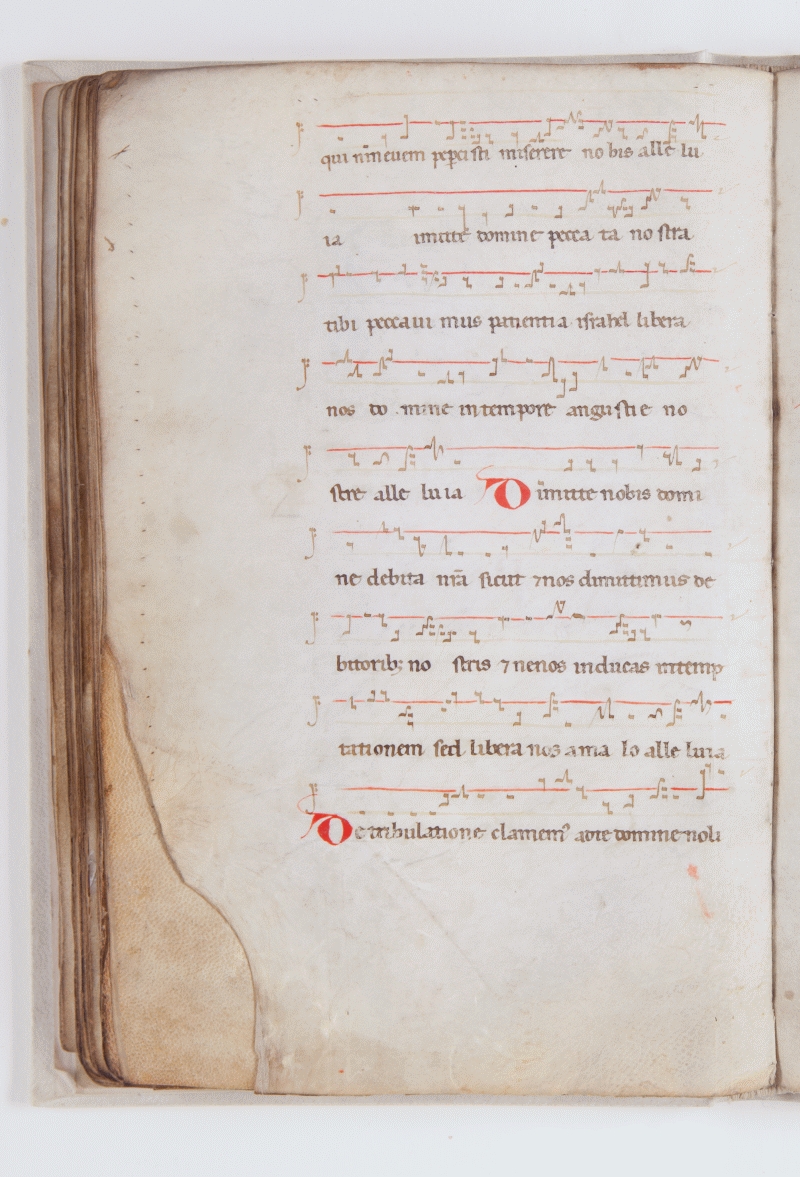 qui niniven pepcisti miserere no bis alle lu
ia imitte domine pecca ta no stra
tibi peccavi mus patientia israhel libera
nos do mine in tempore angustie no
stre alle luia Dimitte nobis domi
ne debita nr̄a sicut ⁊ nos dimittimus de
bitorib; no stris ⁊ ne nos inducas in temp
tationem sed libera nos a ma lo alle luia
De tribulatione clamem⁹ ad te domine noli